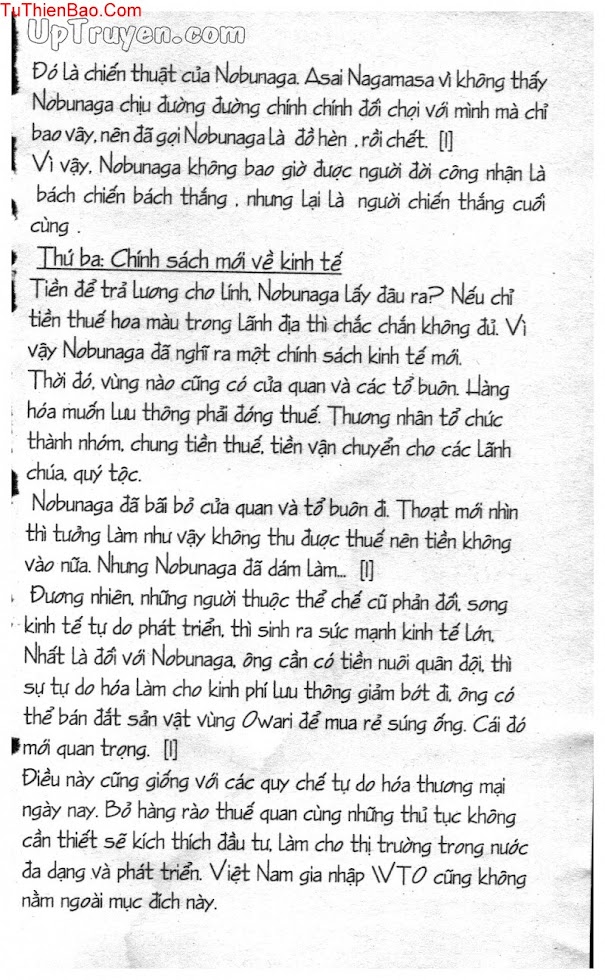 TuThienBao.Com
UpTruyen.com
Đó là chiến thuật của Nobunaga. Asai Nagamasa vì không thấy
Nobunaga chịu đường đường chính chính đối chọi với mình mà chỉ
bao vây, nên đã gọi Nobunaga là đồ hèn , rồi chết. [1]
Vì vậy, Nobunaga không bao giờ được người đời công nhận là
bách chiến bách thắng , nhưng lại là người chiến thắng cuối
cùng .
Thứ ba: Chính sách mới về kinh tế
Tiền để trả lương cho lính, Nobunaga lấy đâu ra? Nếu chỉ
tiền thuế hoa màu trong lãnh địa thì chắc chắn không đủ. Vì
vậy Nobunaga đã nghĩ ra một chính sách kinh tế mới.
Thời đó, vùng nào cũng có cửa quan và các tổ buôn. Hàng
hóa muốn lưu thông phải đóng thuế. Thương nhân tổ chức
thành nhóm, chung tiền thuế, tiền vận chuyển cho các lãnh
chúa, quý tộc.
Nobunaga đã bãi bỏ cửa quan và tổ buôn đi. Thoạt mới nhìn
thì tưởng làm như vậy không thu được thuế nên tiền không
vào nữa. Nhưng Nobunaga đã dám làm... [1]
Đương nhiên, những người thuộc thể chế cũ phản đối, song
kinh tế tự do phát triển, thì sinh ra sức mạnh kinh tế lớn.
Nhất là đối với Nobunaga, ông cần có tiền nuôi quân đội, thì
sự tự do hóa làm cho kinh phí lưu thông giảm bớt đi, ông có
thể bán đắt sản vật vùng Owari để mua rẻ súng ống. Cái đó
mới quan trọng. [1]
Điều này cũng giống với các quy chế tự do hóa thương mại
ngày nay. Bỏ hàng rào thuế quan cùng những thủ tục không
cần thiết sẽ kích thích đầu tư, làm cho thị trường trong nước
đa dạng và phát triển. Việt Nam gia nhập WTO cũng không
nằm ngoài mục đích này.